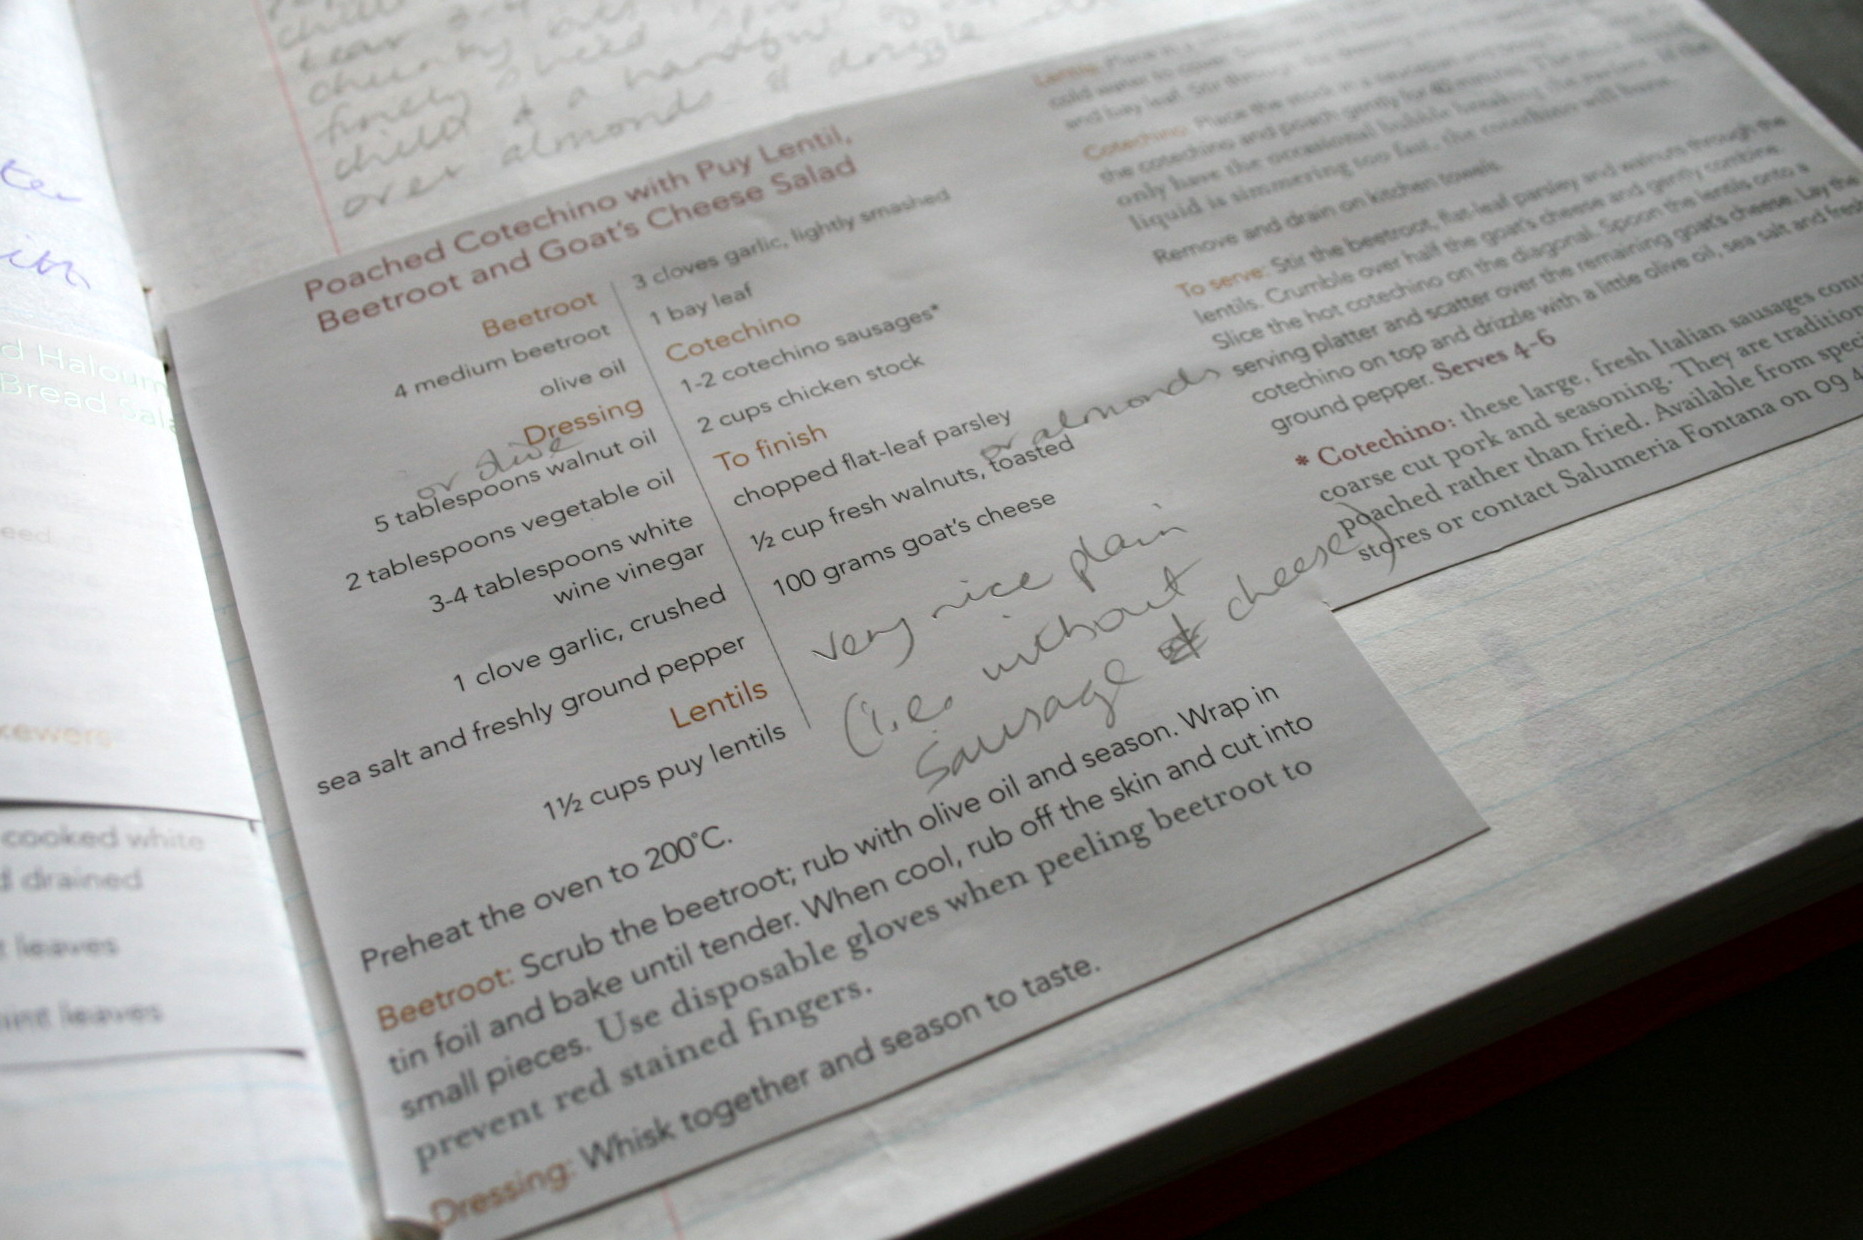 child
tear 3-4
chunky
finely sliced
child & a handful of
over almonds & drizzle
d Haloum
Bread Sala
kewers
cooked white
d drained
t leaves
int leaves
Poached Cotechino with Puy Lentil,
Beetroot and Goat's Cheese Salad
Beetroot
4 medium beetroot
olive oil
Dressing
or olive
5 tablespoons walnut oil
2 tablespoons vegetable oil
3-4 tablespoons white
wine vinegar
1 clove garlic, crushed
sea salt and freshly ground pepper
Lentils
1½ cups puy lentils
3 cloves garlic, lightly smashed
1 bay leaf
Cotechino
1-2 cotechino sausages*
2 cups chicken stock
To finish
chopped flat-leaf parsley
or almonds
½ cup fresh walnuts, toasted
100 grams goat's cheese
very nice plain
(i.e. without
sausage & cheese)
Preheat the oven to 200°C.
Beetroot: Scrub the beetroot; rub with olive oil and season. Wrap in
tin foil and bake until tender. When cool, rub off the skin and cut into
small pieces. Use disposable gloves when peeling beetroot to
prevent red stained fingers.
Dressing: Whisk together and season to taste.
Lentils: Place in a
cold water to cover.
and bay leaf. Stir through the
Cotechino: Place the stock in a saucepan
the cotechino and poach gently for 40 minutes. The
only have the occasional bubble breaking the surface. If the
liquid is simmering too fast, the cotechino will burst.
Remove and drain on kitchen towels.
To serve: Stir the beetroot, flat-leaf parsley and walnuts through the
lentils. Crumble over half the goat's cheese and gently combine.
Slice the hot cotechino on the diagonal. Spoon the lentils onto a
serving platter and scatter over the remaining goat's cheese. Lay the
cotechino on top and drizzle with a little olive oil, sea salt and fresh
ground pepper. Serves 4-6
* Cotechino: these large, fresh Italian sausages cont
coarse cut pork and seasoning. They are tradition
poached rather than fried. Available from speci
stores or contact Salumeria Fontana on 09 4